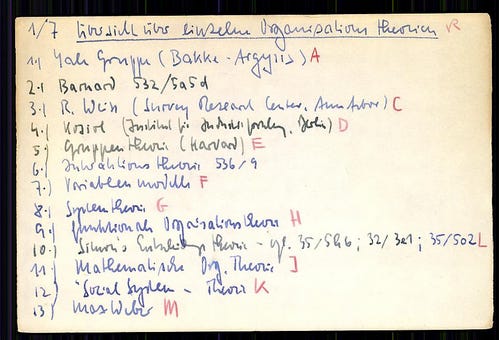 1/7 Übersicht über einzelne Organisationstheorien R
1.) Yale Gruppe (Bakke - Argyris) A
2.) Barnard 532/5a5d
3.) R. Weiss (Survey Research Center, Ann Arbor) C
4.) Kosiol (Institut für Industrieforschung, Berlin) D
5.) Gruppentheorie (Harvard) E
6.) Interaktionstheorie 536/9
7.) Variablenmodelle F
8.) Systemtheorie G
9.) funktionale Organisationstheorie H
10.) Simon's Entscheidungstheorie - vgl. 35/5b6; 32/3e1; 35/502 L
11.) Mathematische Org. Theorie J
12.) "Social System - Theorie K
13) Max Weber M